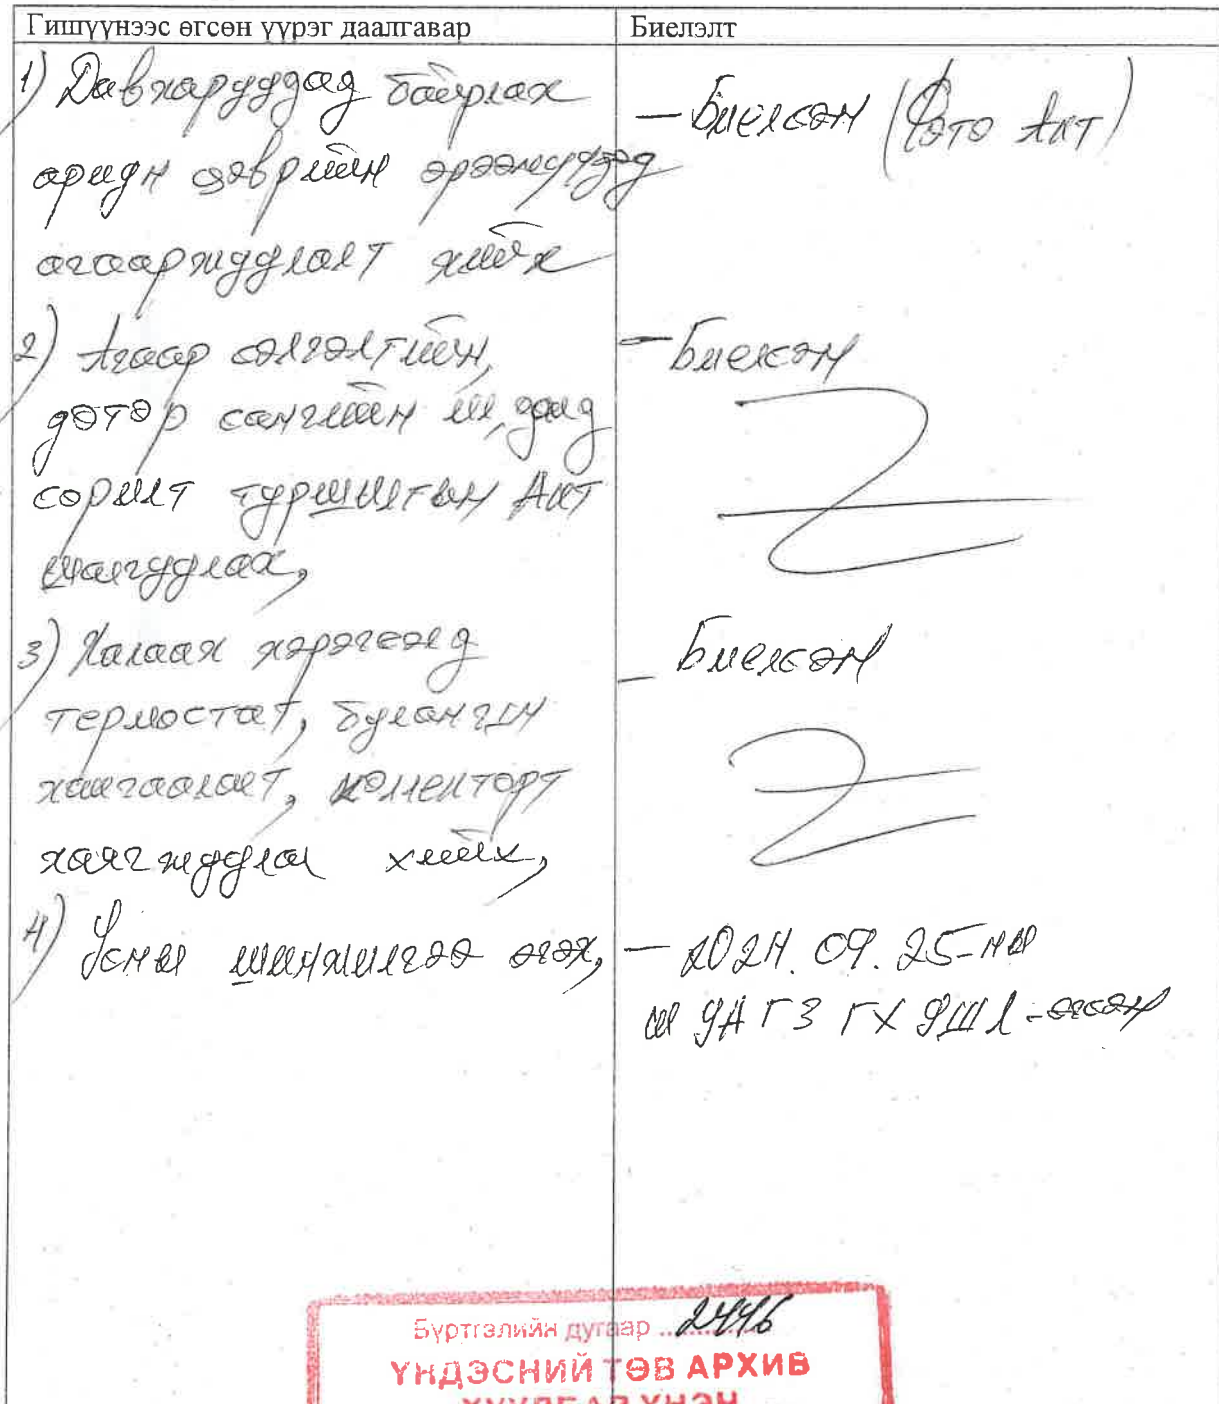 Гишүүнээс өгсөн үүрэг даалгавар
Биелэлт
1) Давхаруудад байрлах
ариун цэврийн өрөөнүүдэд
агааржуулалт хийх
- Биелсэн (Фото Акт)
2) Агаар сэлгэлтийн,
дотор сангийн ил, далд
сорилт туршилтын Акт
шалгуулах,
- Биелсэн
3) Халаах хэрэгсэлд
термостат, булангийн
хамгаалалт, коллекторт
хаягжуулал хийх,
- Биелсэн
4) Усны шинжилгээ өгөх,
- 2024. 09. 25-ны
УАГЗ ГХ УШЛ - өгсөн
Бүртгэлийн дугаар ... 2446
ҮНДЭСНИЙ ТӨВ АРХИВ
ХУУЛБАР ҮНЭН